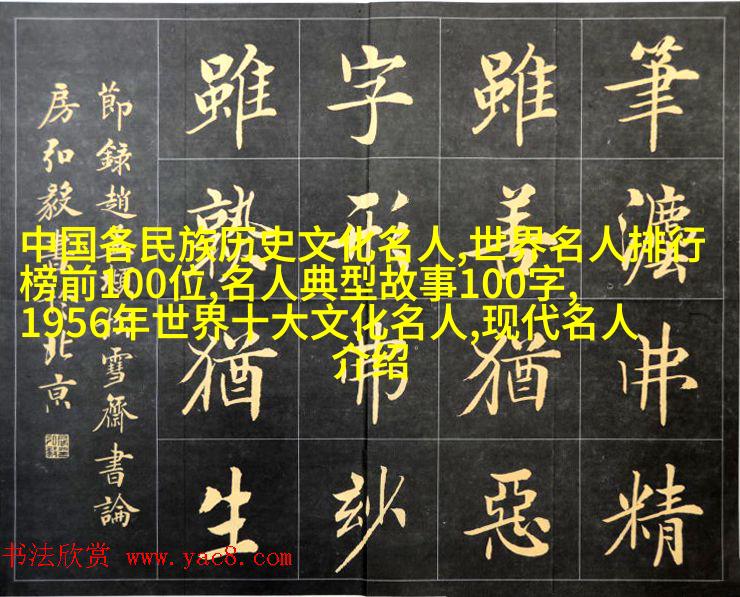 筆灋弗精
雖善猶惡
字形弗妙
雖熟猶生
節錄趙頫雪齋書論
房弘毅書北亰
中国各民族历史文化名人,世界名人排行
榜前100位,名人典型故事100字,
1956年世界十大文化名人,现代名人
介绍
书法欣赏 www.yac8.com